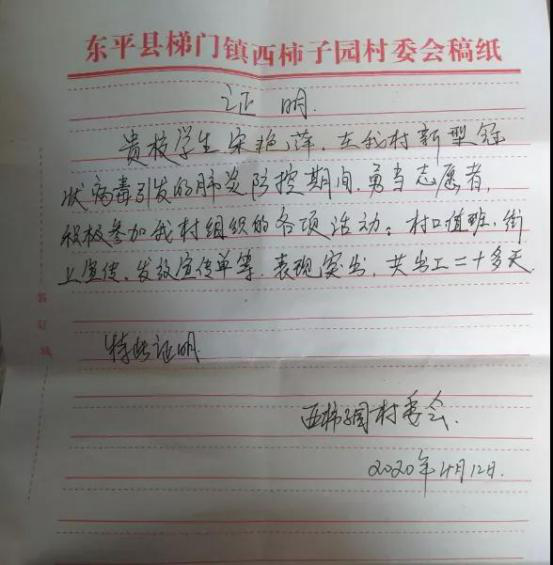 东平县梯门镇西柿子园村委会稿纸
证明.
贵校学生宋艳萍,在我村新型冠
状病毒引发的肺炎防控期间,勇当志愿者,
积极参加我村组织的各项活动:村口值班、街
上宣传、发放宣传单等,表现突出,共出工二十多天.
特此证明
西柿子园村委会.
2020年4月12日.
装订线